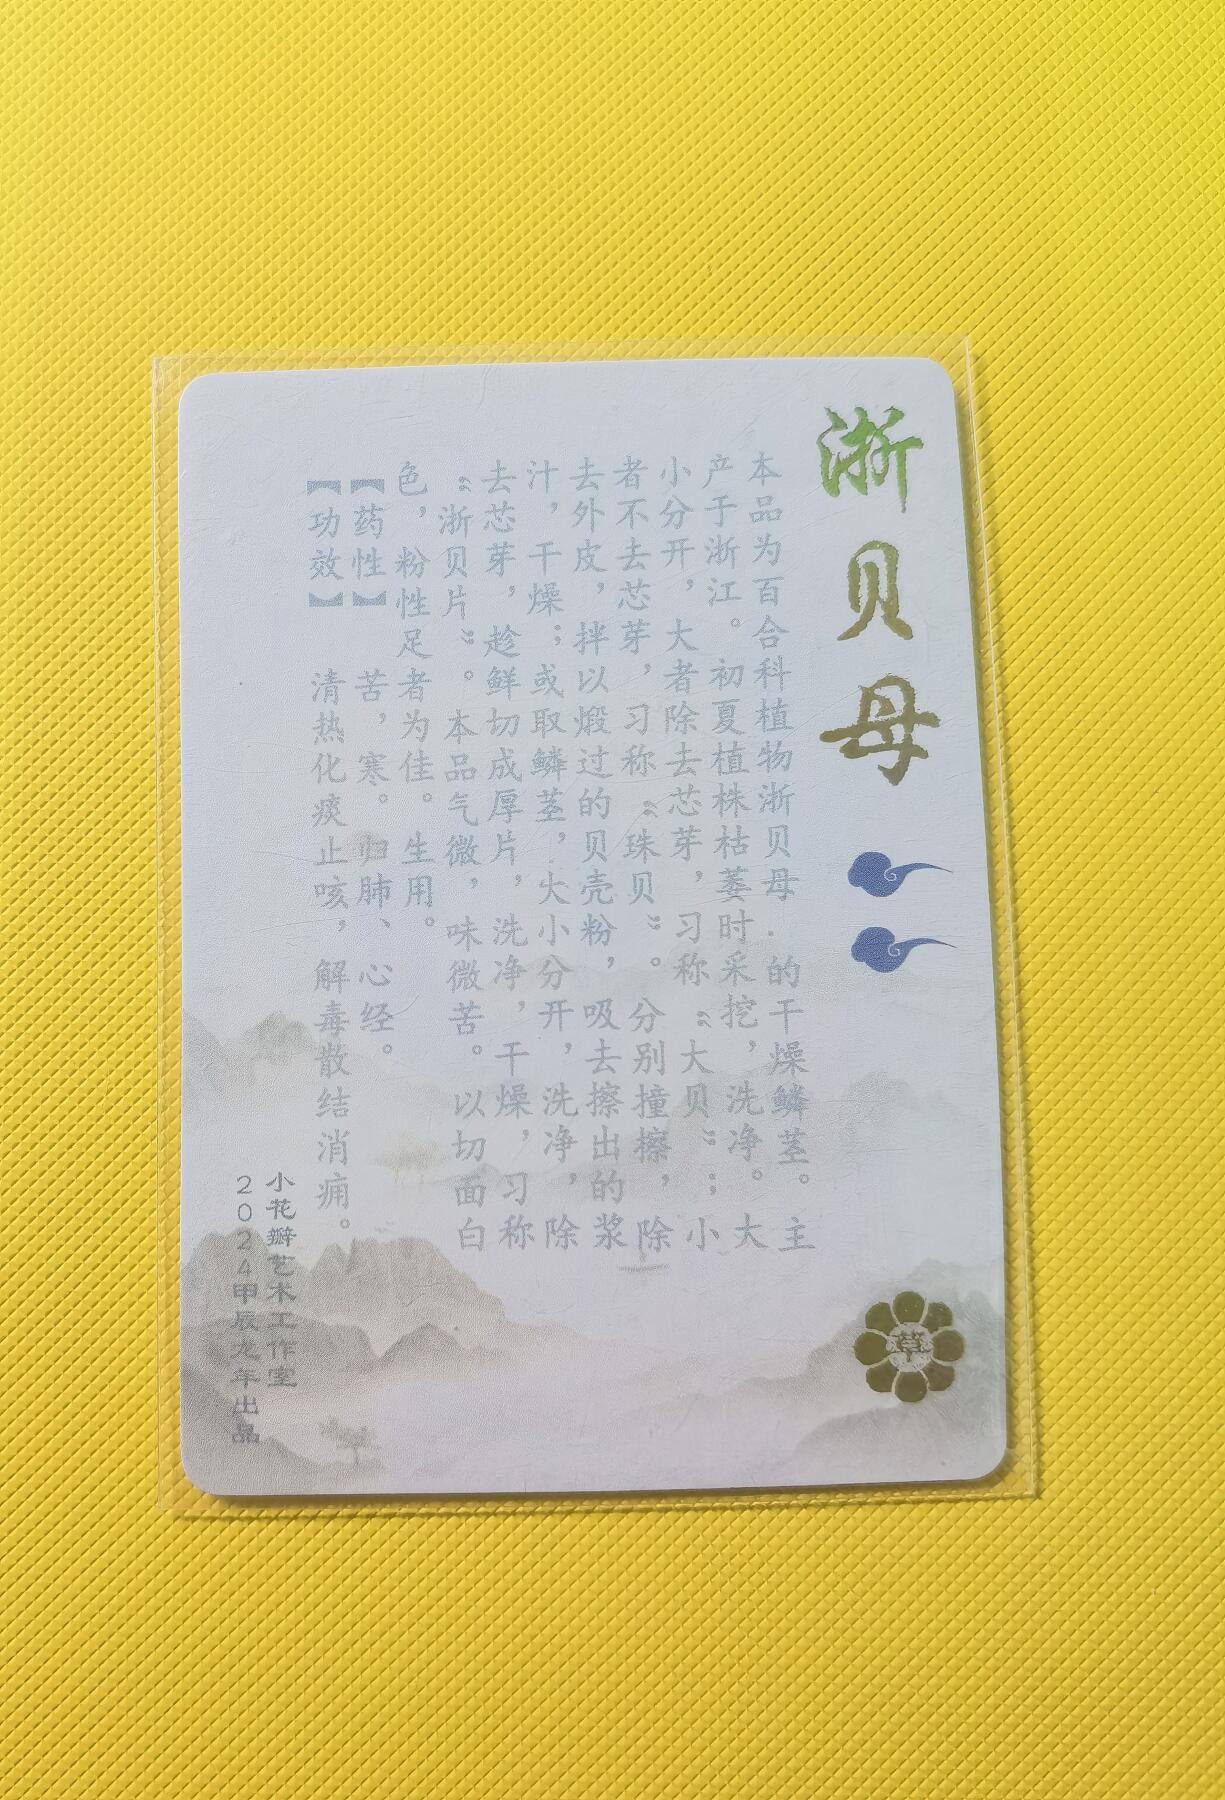 浙贝母
本品为百合科植物浙贝母.的干燥鳞茎。主
产于浙江。初夏植株枯萎时采挖，洗净。大
小分开，大者除去芯芽，习称“大贝”；小
者不去芯芽，习称“珠贝”。分别撞擦，除
去外皮，拌以煅过的贝壳粉，吸去擦出的浆
汁，干燥；或取鳞茎，大小分开，洗净，除
去芯芽，趁鲜切成厚片，洗净，干燥，习称
“浙贝片”。本品气微，味微苦。以切面白
色，粉性足者为佳。生用。
【药性】 苦，寒。归肺、心经。
【功效】 清热化痰止咳，解毒散结消痈。
小花瓣艺术工作室
2024甲辰龙年出品
草